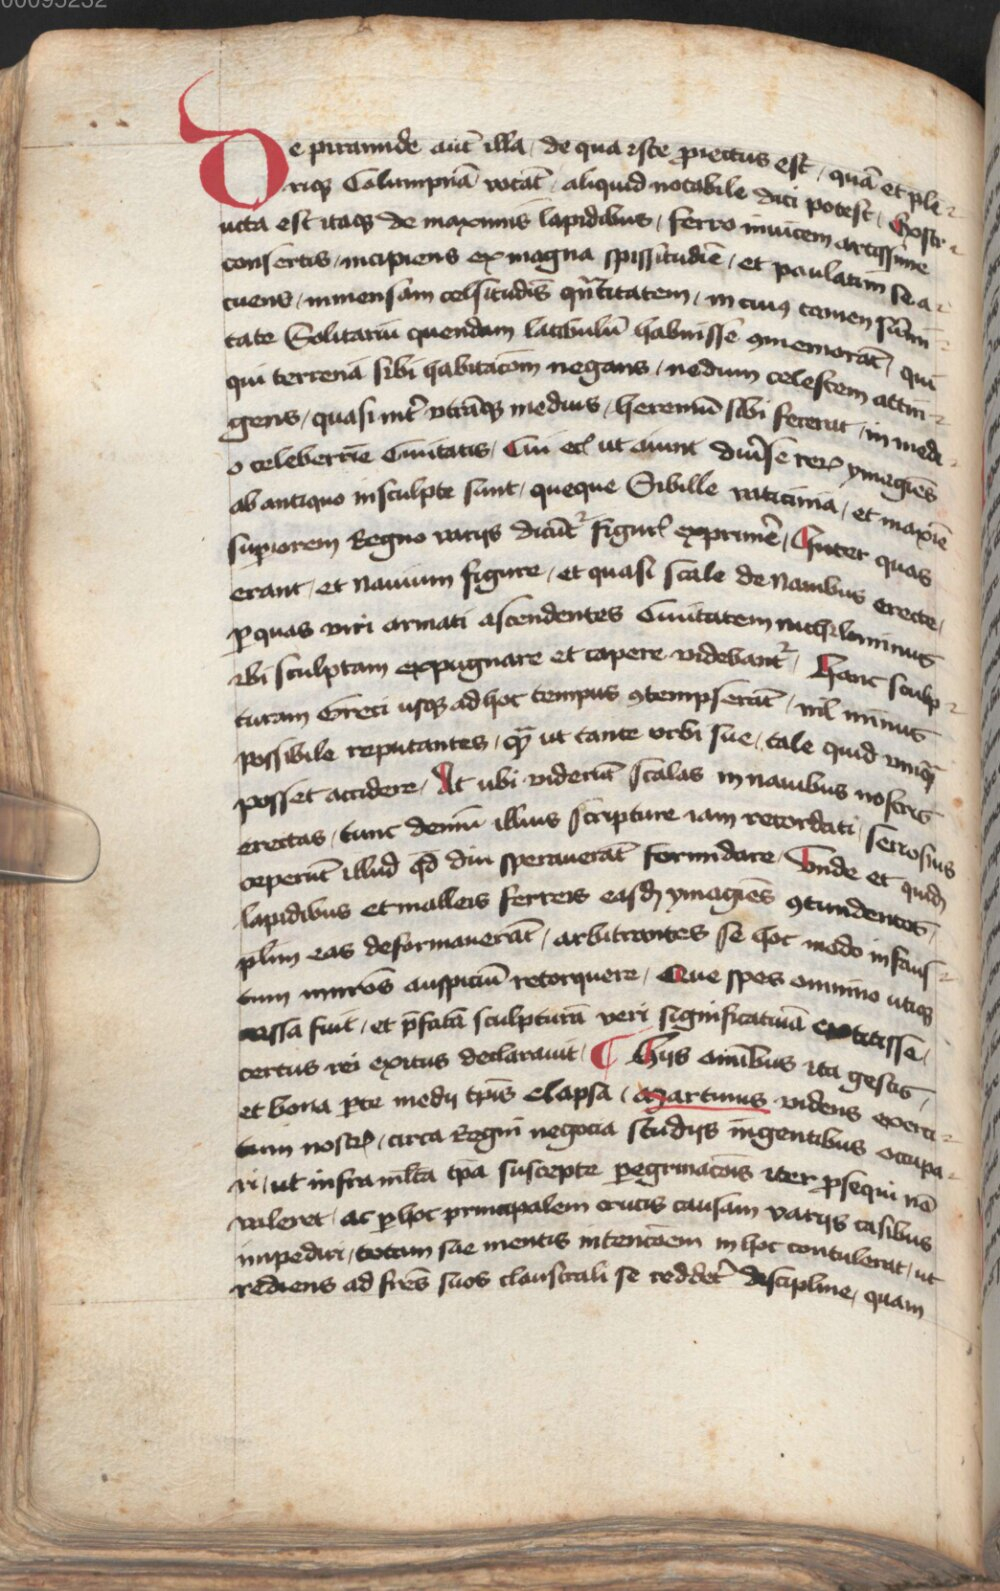 00095232
De piramide aut̄ illa / de qua iste ꝓiectus est / quā et ple-
riq̃ Columpnā vocāt / aliquid notabile dici potest / Constr-
ucta est itaq̃ de maximis lapidibus / ferro inuicem artissime
consertis / incipiens ex magna spissitudīe / et paulatim se a-
cuens / inmensam celsitudīs qn̄titatem / in cuiꝰ tamen sūmi-
tate Solitariū quendam latibulū habuisse ꝯmemorāt / qui
qui terrenā sibi habitacōm negans / nedum celestem attin-
gens / quasi int̾ vtrāq̃ medius / heremū sibi fecerat / in medi-
o celeberrīe Ciuitatis / Cui ec̄ ut aiunt diūse reꝝ ymagīes
ab antiquo insculpte sunt / queque Sibille vaticinia / et maxīe
suꝑ iorem Regno varijs dicūt᷑ figur̄ exprimē / Inter quas
erant / et Nauium figure / et quasi scale de Nauibus erecte /
ꝑ quas viri armati ascendentes Ciuitatem nichilominus
ibi sculptam expugnare et capere videbant᷑ / Hanc sculp-
turam Greci usq̃ ad hoc tempus ꝯtempserāt / nīl minus
possibile reputantes / qͣ ut tante vrbi sue / tale quid vnq̄
posset accidere / At ubi viderūt scalas in nauibus nostris
erectas / tunc demū illius scripture iam recordati / serrosius
ceperūt illud qd̄ diu sperauerāt formidare / Vnde et quidē
lapidibus et malleis ferreis easdē ymagīes ꝯtundentes /
plim̄ eas deformauerāt / arbitrantes se hoc modo infaus-
tum in nr̄os auspiciū retorquere / Que spes omnino utiq̃
cassa fuit / et p̄fatā sculpturā veri significatiuā extitisse /
certus rei exitus declarauit / ¶ Hijs om̄ibus ita gestis /
et bona ꝑte medij tp̄is elapsa / Martinus videns exerci-
tum nostꝝ / circa Regni negocia studijs ingentibus occupa-
ri / ut infra mlta tp̄a suscepte ꝑegrinacōis iter ꝓsequi nō
valeret / ac ꝑ hoc principalem crucis causam varijs casibus
impediri / totam sue mentis intencōem in hoc contulerat / ut
rediens ad fr̄es suos claustrali se reddet̾ discipline / quam